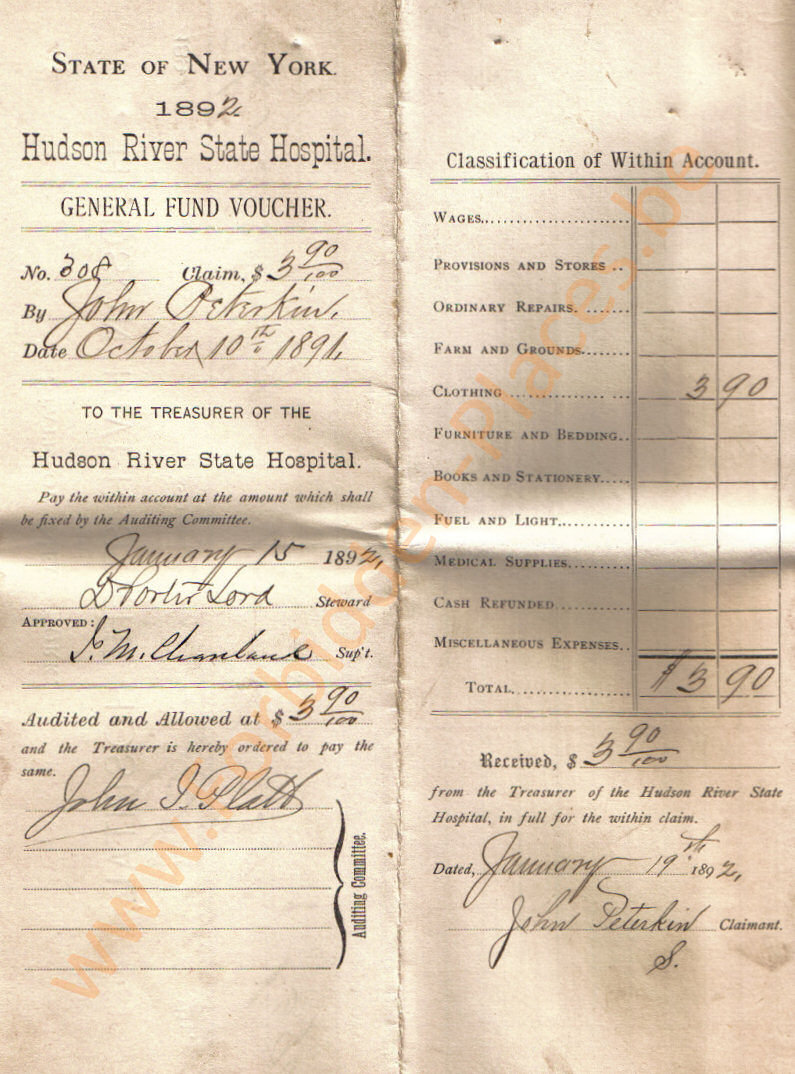 STATE OF NEW YORK.
1892.
Hudson River State Hospital.
GENERAL FUND VOUCHER.
No. 308 Claim, $ 3 90/100
By John Peterkin.
Date October 10th 1891.
TO THE TREASURER OF THE
Hudson River State Hospital.
Pay the within account at the amount which shall
be fixed by the Auditing Committee.
January 15 1892,
D Porter Lord Steward
APPROVED:
J. M. Sup't.
Audited and Allowed at $ 3 90/100
and the Treasurer is hereby ordered to pay the
same.
John I. Platt
Auditing Committee.
Classification of Within Account.
WAGES
PROVISIONS AND STORES
ORDINARY REPAIRS
FARM AND GROUNDS
CLOTHING 3 90
FURNITURE AND BEDDING
BOOKS AND STATIONERY
FUEL AND LIGHT
MEDICAL SUPPLIES
CASH REFUNDED
MISCELLANEOUS EXPENSES
TOTAL $3 90
Received, $ 3 90/100
from the Treasurer of the Hudson River State
Hospital, in full for the within claim.
Dated, January 19th 1892,
John Peterkin Claimant.
S.
www.forbidden-places.be